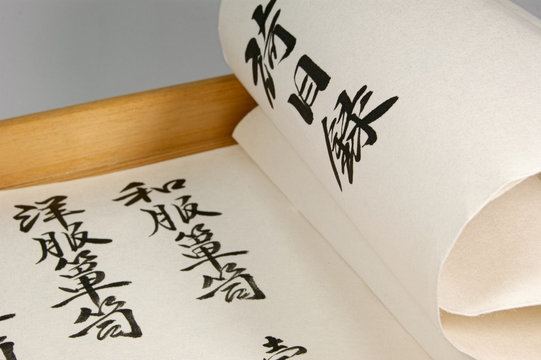 目録
和服箪笥
洋服箪笥